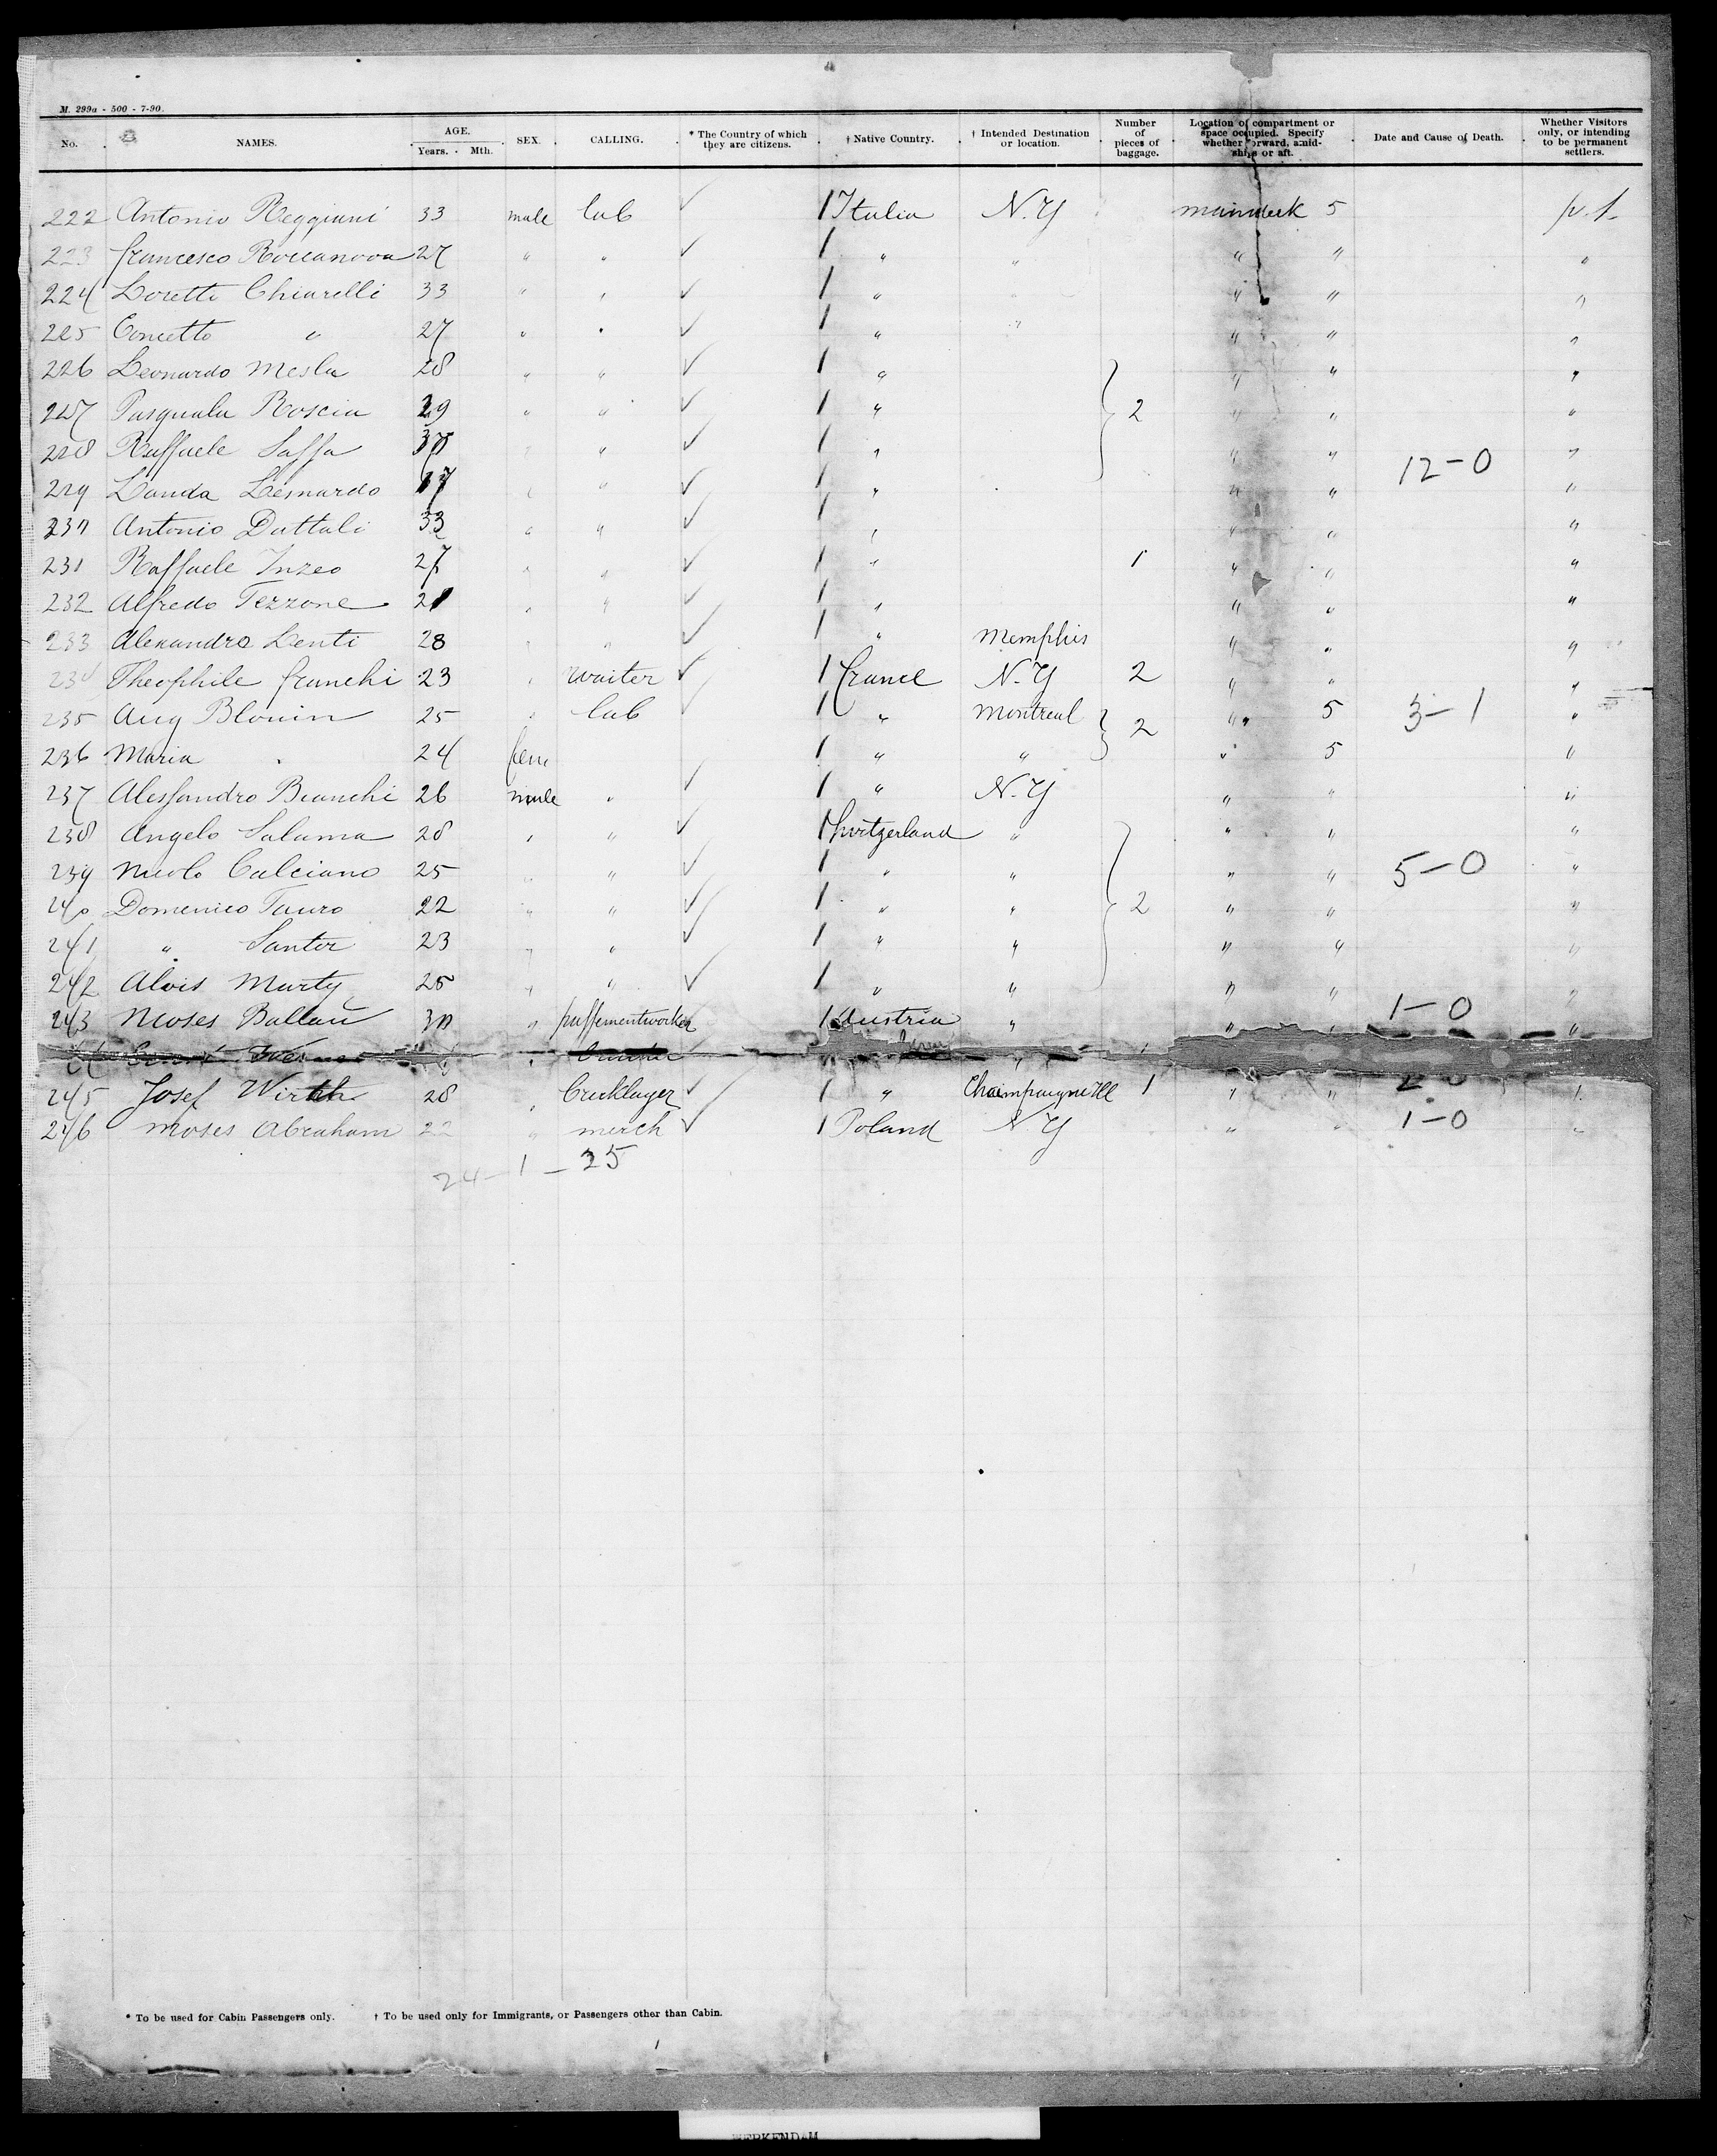 M. 299a - 500 - 7-90.
No. NAMES. AGE. Years. Mth. SEX. CALLING. * The Country of which they are citizens. † Native Country. † Intended Destination or location. Number of pieces of baggage. Location of compartment or space occupied. Specify whether forward, amidships or aft. Date and Cause of Death. Whether Visitors only, or intending to be permanent settlers.
222 Antonio Reggiani 33 male lab ✓ 1 Italia N.Y maindeck 5 p.s.
223 francesco Roccanova 27 " " ✓ 1 " " " " "
224 Loretto Chiarelli 33 " " ✓ 1 " " " " "
225 Concetto " 27 " " ✓ 1 " " " " "
226 Leonardo Mesla 28 " " ✓ 1 " " " "
227 Pasquala Roscia 29 " " ✓ 1 " 2 " " "
228 Raffaele Saffa " " ✓ 1 " " " "
229 Landa Leonardo 17 " " ✓ 1 " " " 12-0 "
230 Antonio Dattali 33 " " ✓ 1 " " " "
231 Raffaele Inzeo 27 " " ✓ 1 " 1 " " "
232 Alfredo Tezzone 21 " " ✓ 1 " " " "
233 Alexandro Lenti 28 " " ✓ 1 " Memphis " " "
234 Theophile franchi 23 " waiter ✓ 1 france N.Y 2 " " "
235 Aug Blouin 25 " lab 1 " Montreal 2 " 5 3-1 "
236 Maria " 24 fem 1 " " " 5 "
237 Alessandro Bianchi 26 male " ✓ 1 " N.Y " " "
238 Angelo Salama 28 " " ✓ 1 Switzerland " " " "
239 Nicolo Calciano 25 " " ✓ 1 " " " " 5-0 "
240 Domenico Tauro 22 " " ✓ 1 " " 2 " " "
241 " Santor 23 " " ✓ 1 " " " " "
242 Alois Marty 25 " " ✓ 1 " " " " "
243 Moses Ballau 30 " passementworker 1 Austria " " " 1-0 "
245 Josef Wirth 28 " Bricklayer ✓ 1 " Champaigne Ill 1 " " 2-0 "
246 Moses Abraham 22 " merch ✓ 1 Poland N.Y " " 1-0 "
24 - 1 - 25
* To be used for Cabin Passengers only. † To be used only for Immigrants, or Passengers other than Cabin.
WERKENDAM